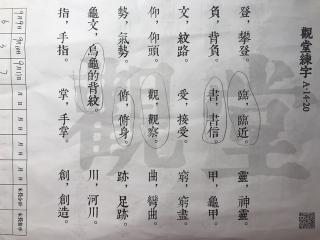 觀堂練字 A-14-20
登，攀登。　臨，臨近。　靈，神靈。
負，背負。　書，書信。　甲，龜甲。
文，紋路。　受，接受。　窮，窮盡。
仰，仰頭。　觀，觀察。　曲，彎曲。
勢，氣勢。　俯，俯身。　跡，足跡。
龜文，烏龜的背紋。　川，河川。
指，手指。　掌，手掌。　創，創造。
觀堂